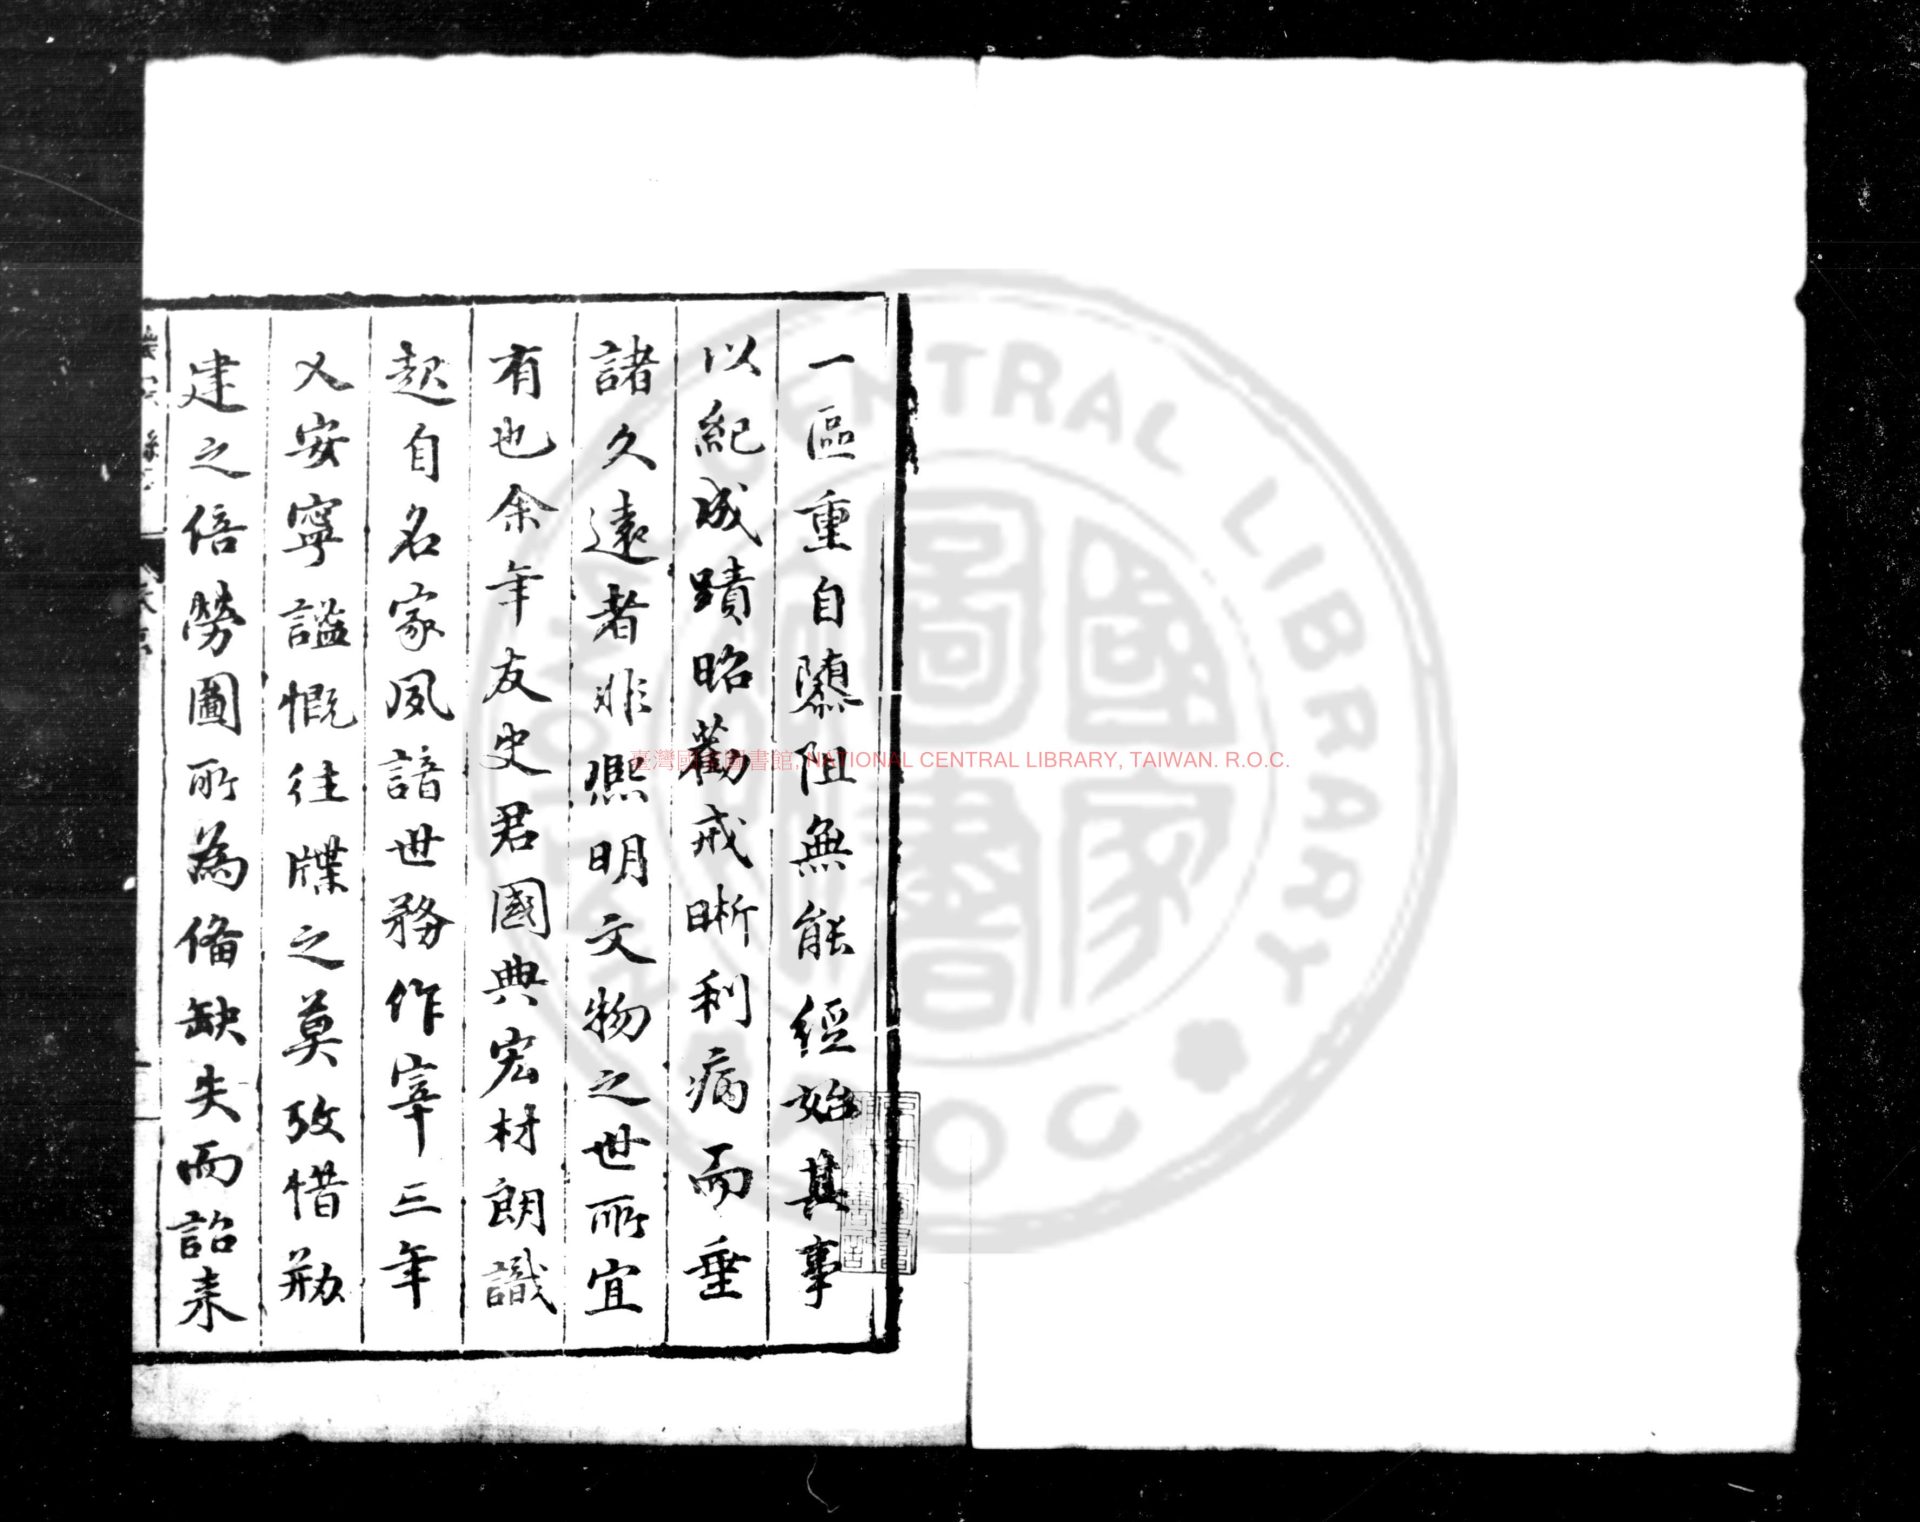 一區重自隳阻無能經始其事
以紀成蹟昭勸戒晰利病而垂
諸久遠者非熙明文物之世所宜
有也余年友史君國典宏材朗識
起自名家夙諳世務作宰三年
乂安寧謐慨往牒之莫攷惜剏
建之倍勞圖所為俻缺失而詒来
臺灣國家圖書館, NATIONAL CENTRAL LIBRARY, TAIWAN. R.O.C.
NATIONAL CENTRAL LIBRARY R.O.C.
國家圖書